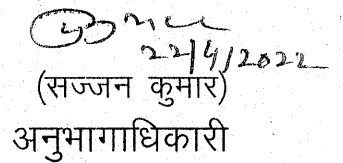 22/4/2022
(सज्जन कुमार)
अनुभागाधिकारी